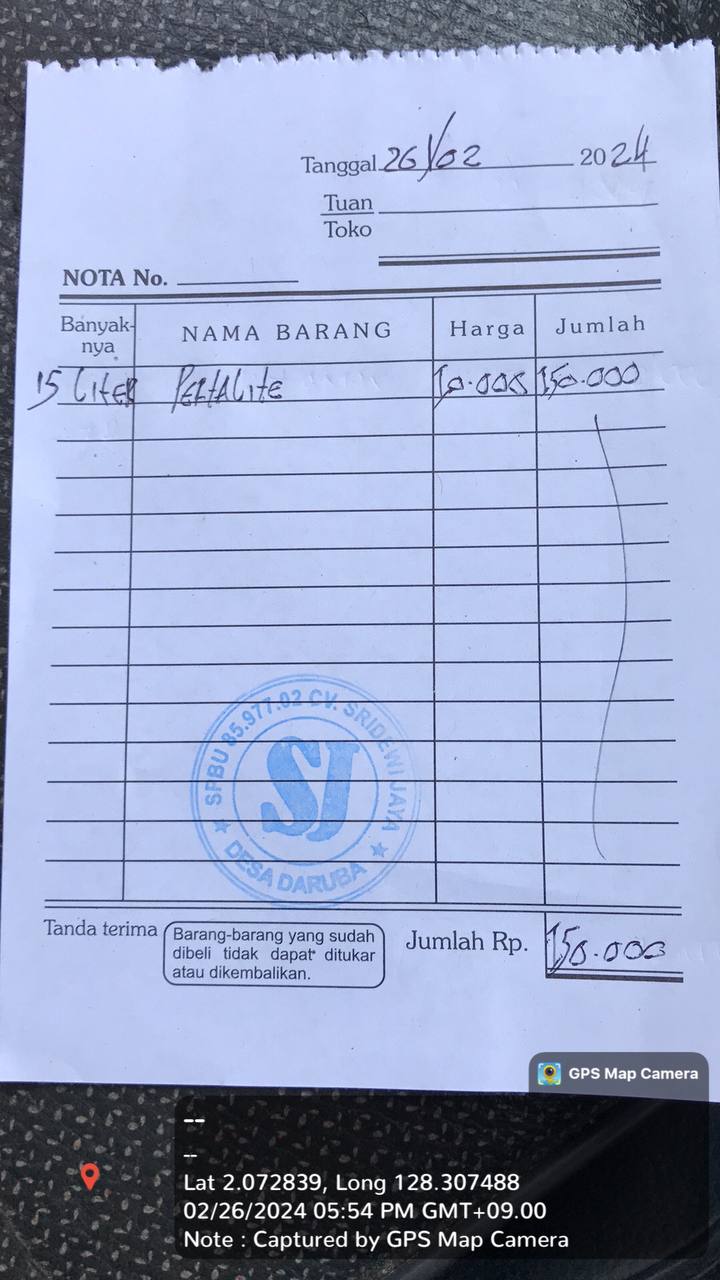 Tanggal 26/02 2024
Tuan
Toko
NOTA No.
Banyak-nya NAMA BARANG Harga Jumlah
15 LiteR PERtALite 10.000 150.000
SPBU 85.977.02 CV. SRIDEWI JAYA
SJ
DESA DARUBA
Tanda terima
Barang-barang yang sudah
dibeli tidak dapat ditukar
atau dikembalikan.
Jumlah Rp. 150.000
GPS Map Camera
--
--
Lat 2.072839, Long 128.307488
02/26/2024 05:54 PM GMT+09.00
Note : Captured by GPS Map Camera